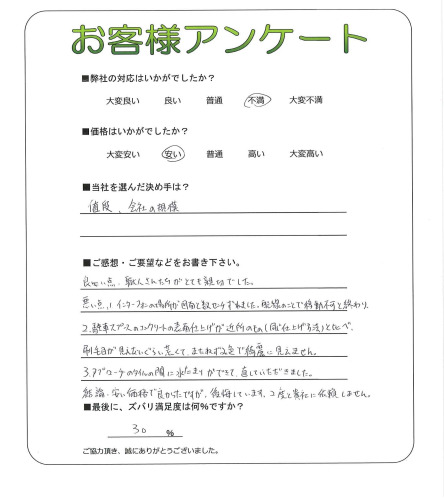 お客様アンケート
■弊社の対応はいかがでしたか?
大変良い 良い 普通 不満 大変不満
■価格はいかがでしたか?
大変安い 安い 普通 高い 大変高い
■当社を選んだ決め手は?
値段、会社の規模
■ご感想・ご要望などをお書き下さい。
良い点、職人さんたちがとても親切でした。
悪い点、1.インターフォンの場所が図面と数センチずれました。配線のことで移動不可と終わり
2.駐車スペースのコンクリートの表面仕上げが近所のもの(同じ仕上げ方法)と比べ、
刷毛目が見えないぐらい荒くて、まだらな色で綺麗に見えません。
3.アプローチのタイルの間に水たまりができて、直していただきました。
結論、安い価格で良かったですが、後悔しています。2度と貴社に依頼しません。
■最後に、ズバリ満足度は何%ですか?
30 %
ご協力頂き、誠にありがとうございました。